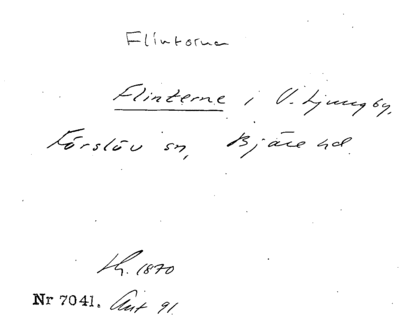 Flintorna
Flinterne i V. Ljungby,
Förslöv sn, Bjäre hd.
Lh. 1870
Nr 7041. Ant 91.